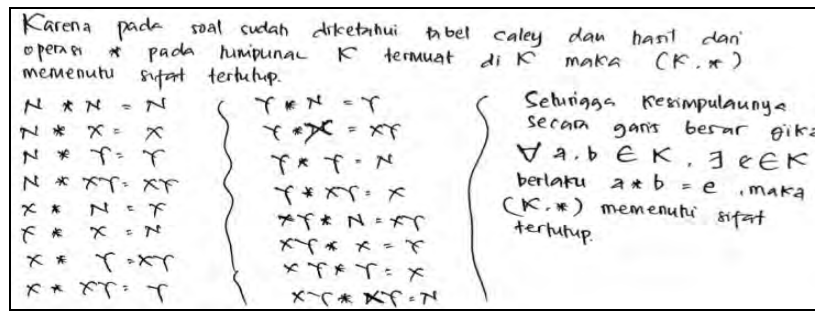 Karena pada soal sudah diketahui tabel caley dan hasil dari
operasi * pada himpunan K termuat di K maka (K.*)
memenuhi sifat tertutup.
N * N = N
N * X = X
N * Y = Y
N * XY = XY
X * N = X
X * X = N
X * Y = XY
X * XY = Y
Y * N = Y
Y * X = XY
Y * Y = N
Y * XY = X
XY * N = XY
XY * X = Y
XY * Y = X
XY * XY = N
Sehingga kesimpulannya
secara garis besar jika
∀ a.b ∈ K, ∃ e ∈ K
berlaku a * b = e, maka
(K.*) memenuhi sifat
tertutup.